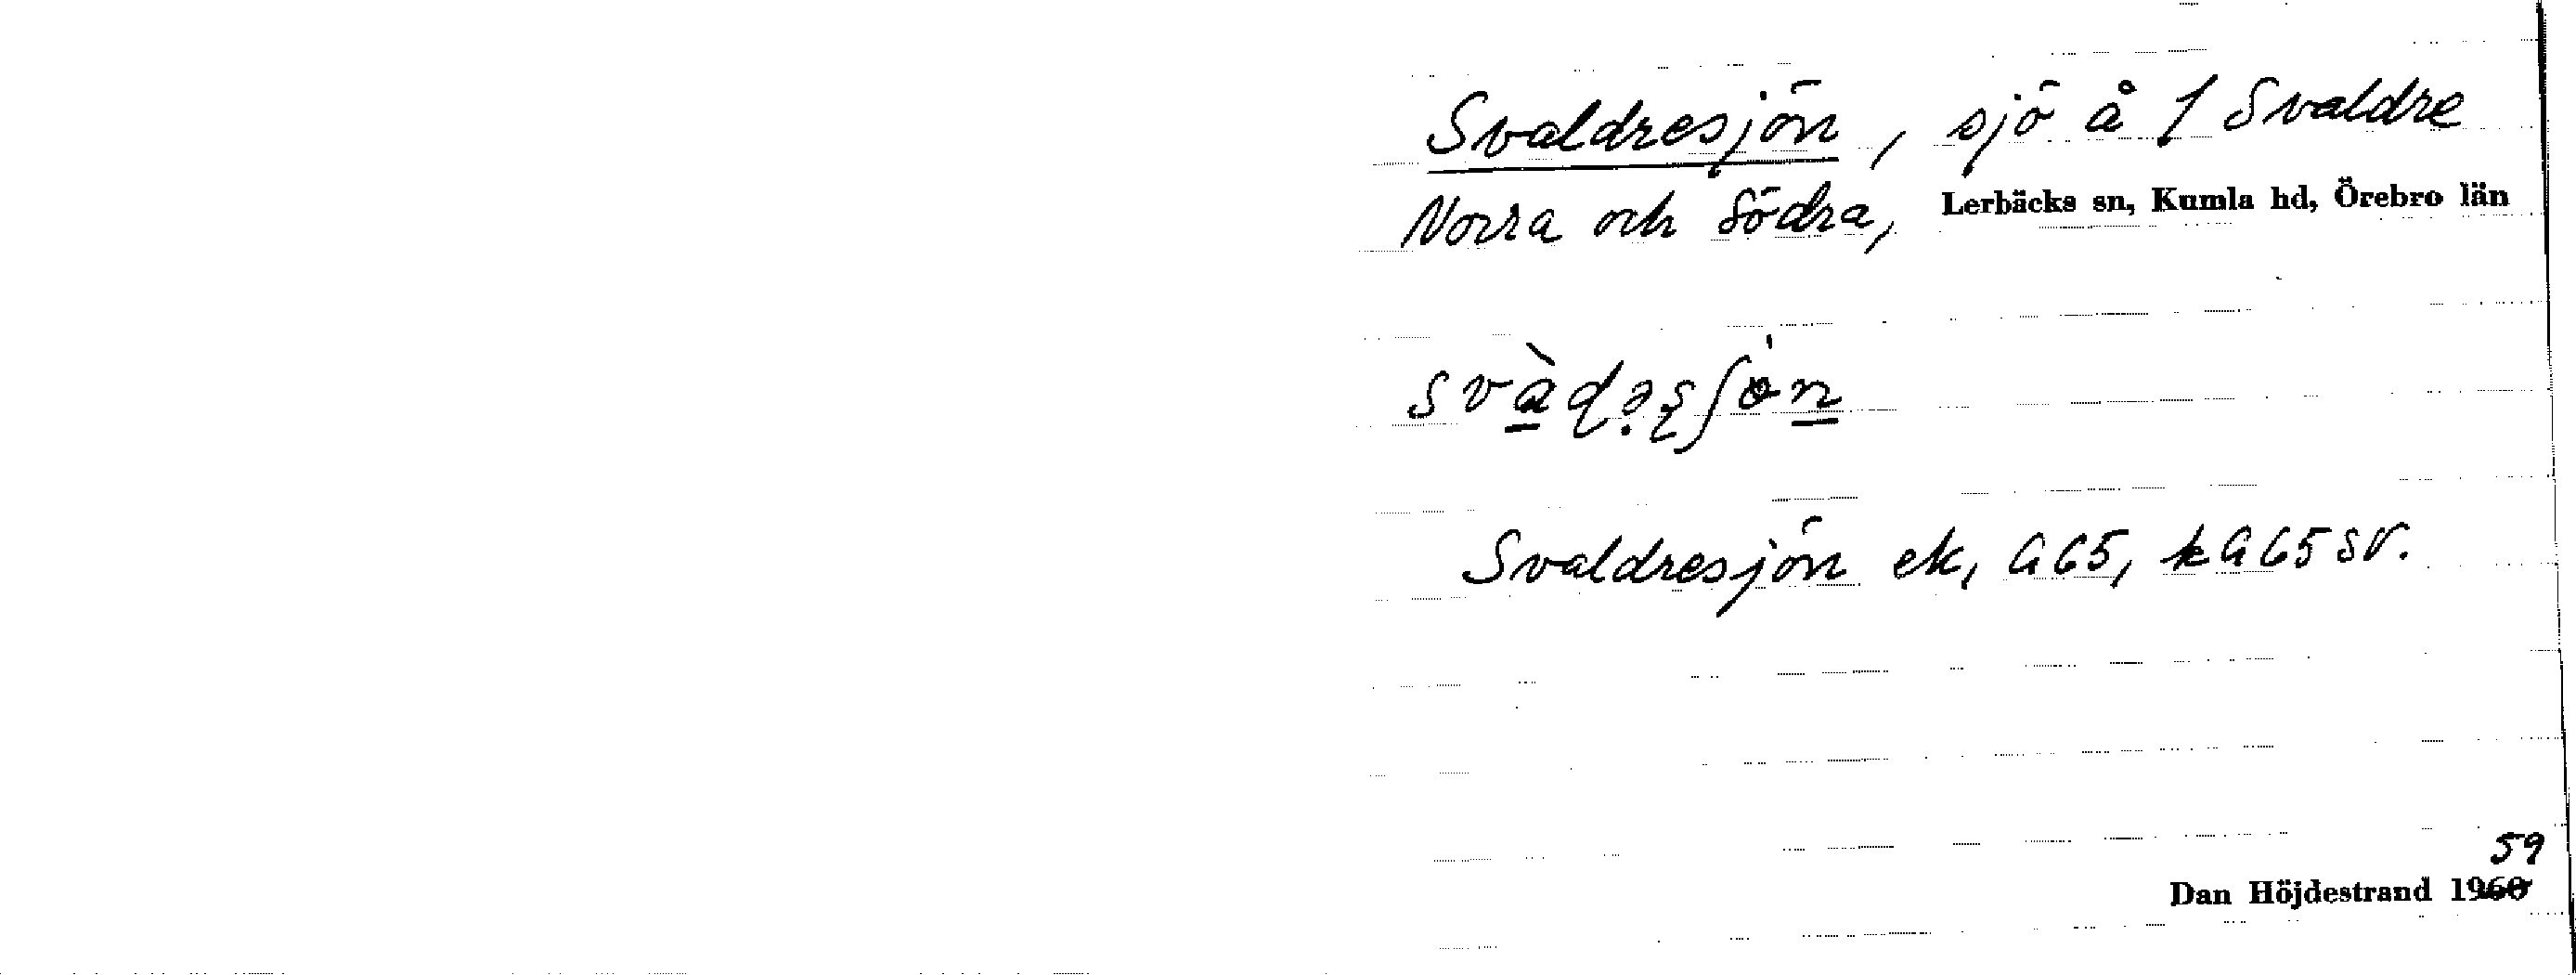 Svaldresjön, sjö å 1 Svaldre
Norra och Södra, Lerbäcks sn, Kumla hd, Örebro län
Svaldresjön ek, G65, kG65SV.
59
Dan Höjdestrand 1960